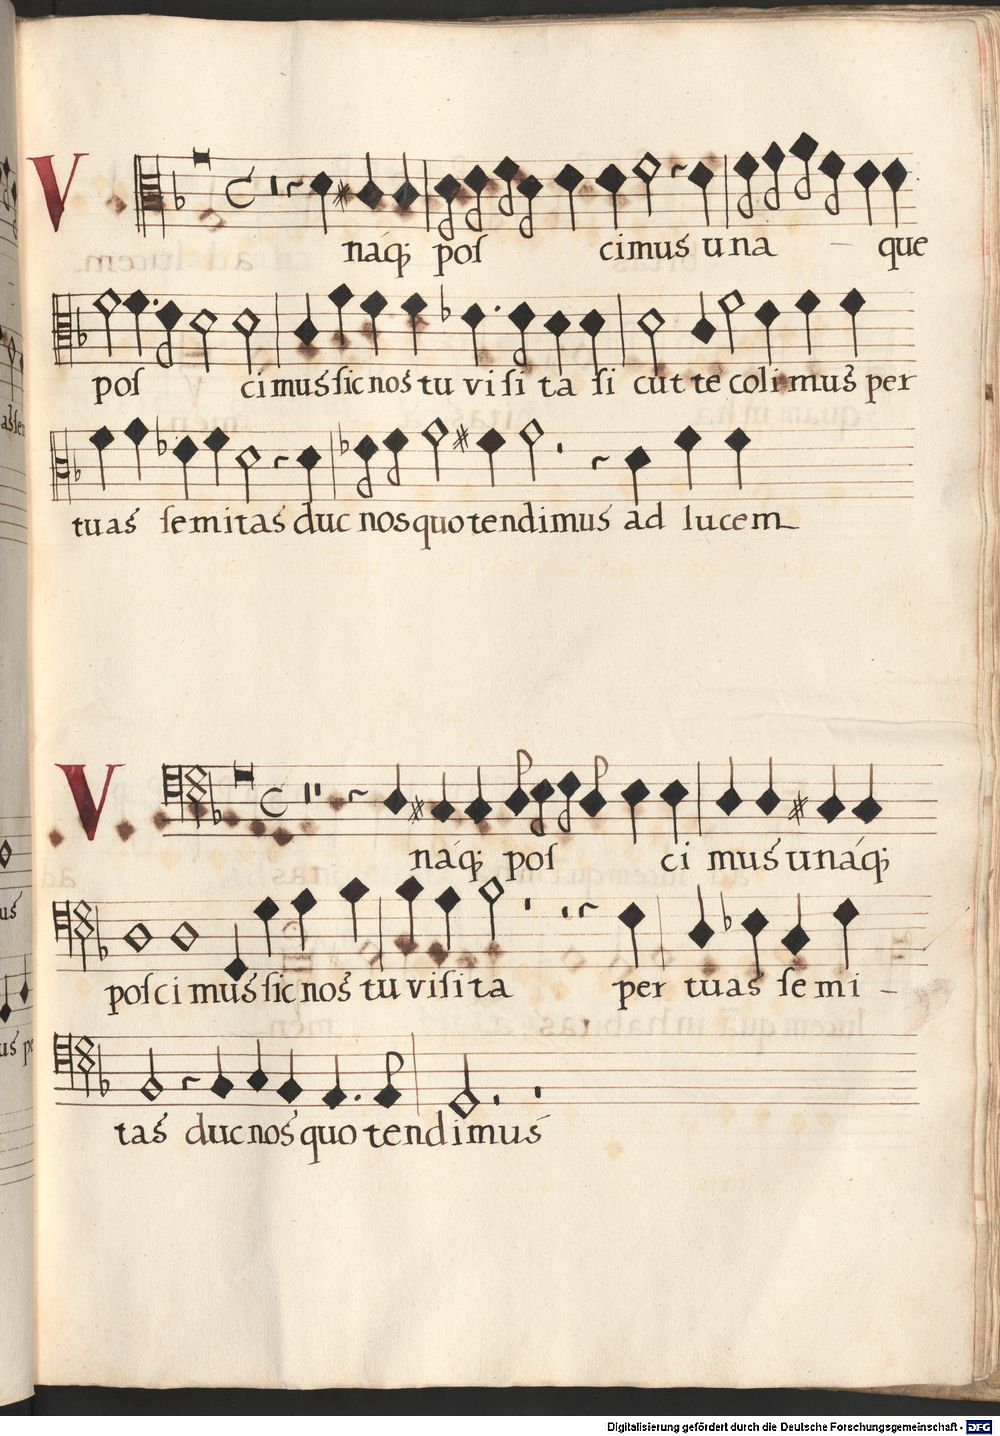 V
náq; poſ cimus una – que
poſ ci mus ſic nos tu vi ſi ta ſi cut te coli mus per
tuas ſemitas duc nos quo tendimus ad lucem
V
náq; poſ ci mus unáq;
poſci mus ſic nos tu viſita per tuas ſe mi –
tas duc nos quo tendimus
Digitalisierung gefördert durch die Deutsche Forschungsgemeinschaft - DFG